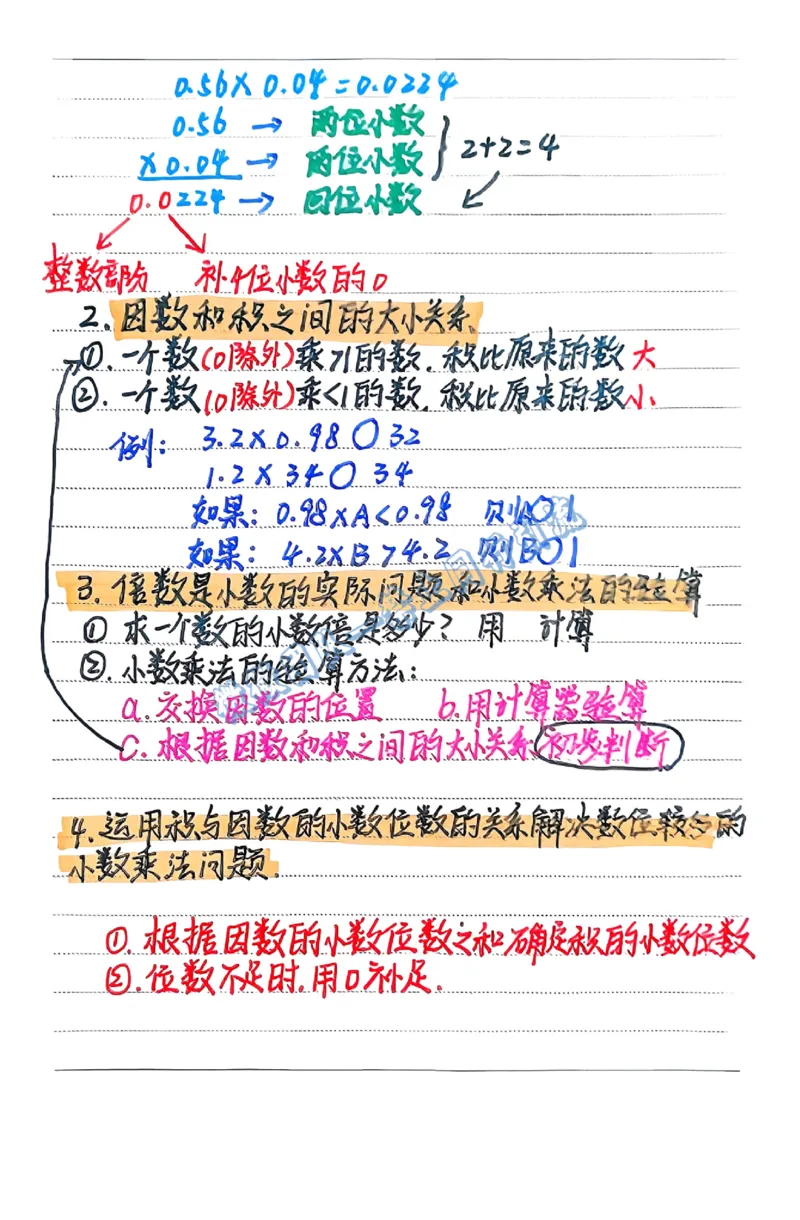 0.56×0.04=0.0224
0.56 → 两位小数
×0.04 → 两位小数 } 2+2=4
0.0224 → 四位小数
整数部份 补4位小数的0
2.因数和积之间的大小关系
①.一个数(0除外)乘>1的数.积比原来的数大
②.一个数(0除外)乘<1的数.积比原来的数小
例: 3.2×0.98○32
1.2×34○34
如果: 0.98×A<0.98 则A○1
如果: 4.2×B>4.2 则B○1
3.倍数是小数的实际问题和小数乘法的验算
① 求一个数的小数倍是多少? 用 计算
②.小数乘法的验算方法:
a.交换因数的位置 b.用计算器验算
C.根据因数和积之间的大小关系初步判断
4.运用积与因数的小数位数的关系解决数位较多的
小数乘法问题.
①.根据因数的小数位数之和确定积的小数位数
②.位数不足时.用0补足.